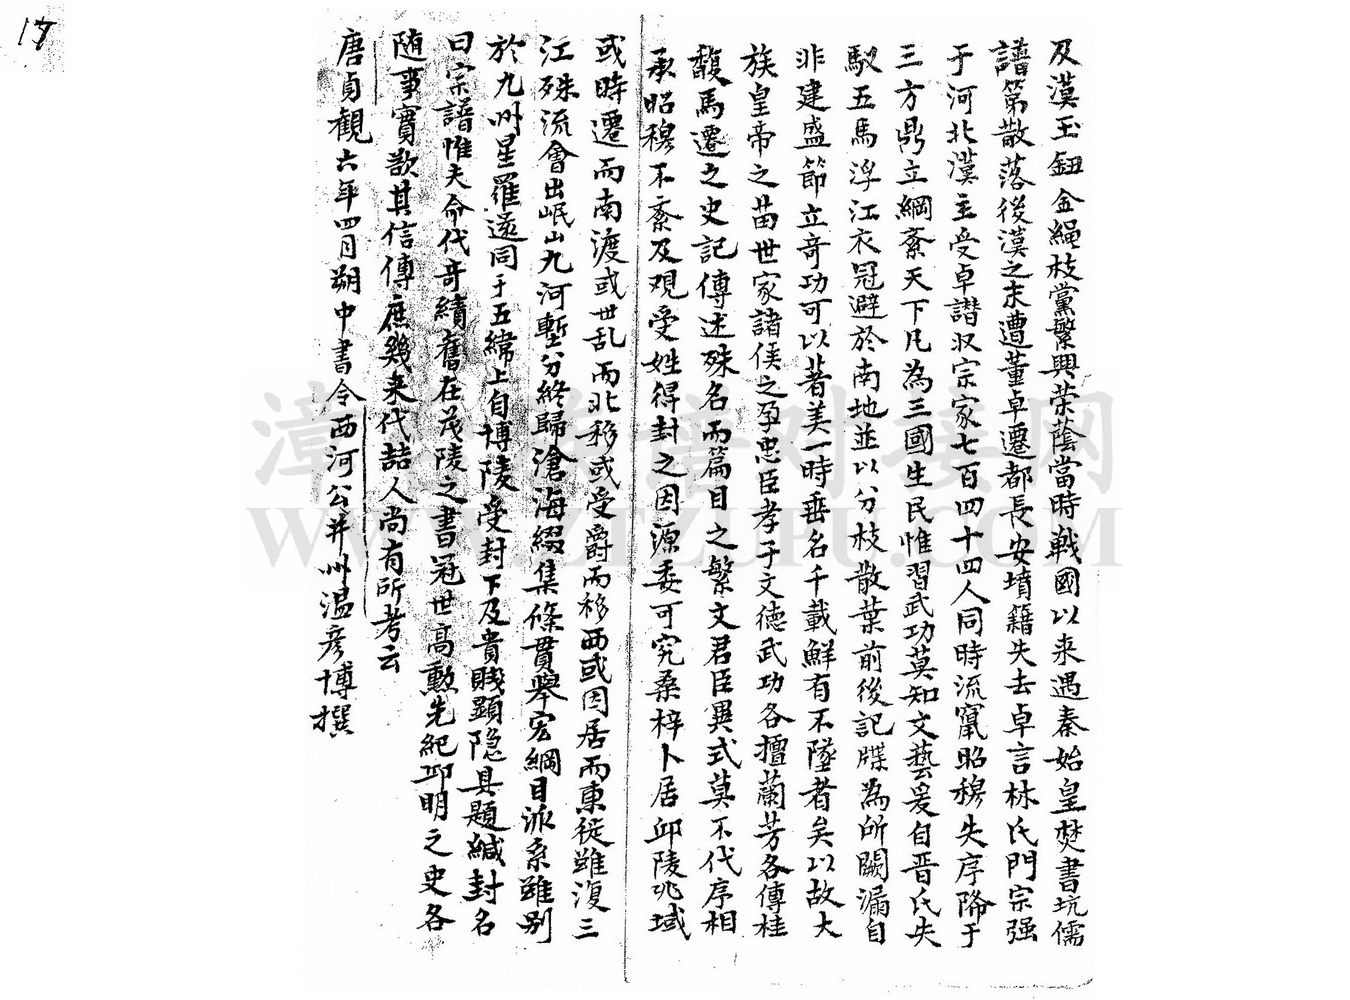 17
及漢玉鈕金繩枝黨繁興荣蔭當時戰國以来遇秦始皇焚書坑儒
譜第散落後漢之末遭董卓遷都長安墳籍失去卓言林氏門宗强
于河北漢主受卓譛収宗家七百四十四人同時流竄昭穆失序降于
三方鼎立綱紊天下凡為三國生民惟習武功莫知文藝爰自晋氏失
馭五馬浮江衣冠避於南地並以分枝散葉前後記牒為所闕漏自
非建盛節立竒功可以著美一時垂名千載鮮有不墜者矣以故大
族皇帝之苗世家諸侯之孕忠臣孝子文德武功各擅蘭芳各傳桂
馥馬遷之史記傳述殊名而篇目之繁文君臣異式莫不代序相
承昭穆不紊及观受姓得封之因源委可究桑梓卜居邱陵兆域
或時遷而南渡或世乱而北移或受爵而移西或因居而東徙雖復三
江殊流會出岷山九河塹分終歸滄海綴集條貫舉宏綱目派系雖别
於九州星羅遂同于五緯上自博陵受封下及貴賤顕隐具題緘封名
曰宗譜惟夫命代竒績舊在茂陵之書冠世高勲先紀邱明之史各
随事實歆其信傳庶幾来代喆人尚有所考云
唐貞觀六年四月朔中書令西河公并州温彦博撰
漳台族谱对接网
WWW.ZTZUPU.COM